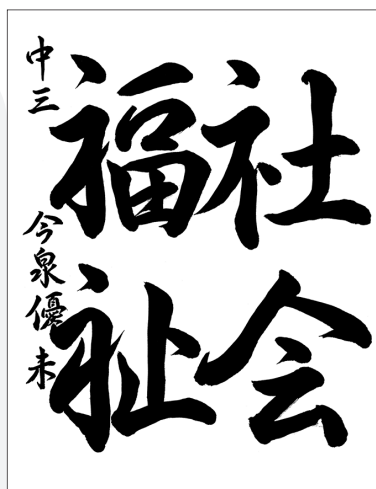 社会
福祉
中三 今泉優未